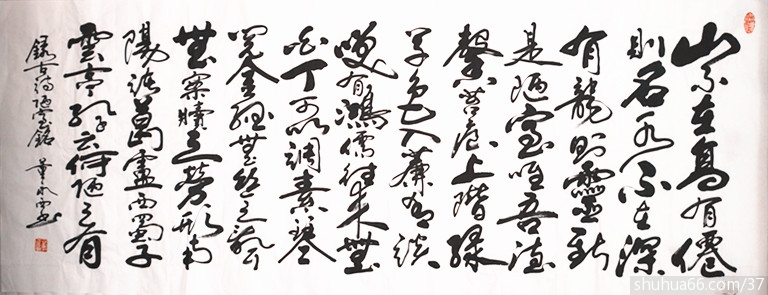 山不在高有僊
則名水不在深
有龍則靈斯
是陋室唯吾德
馨苔痕上階緑
草色入簾青談
笑有鴻儒往来無
白丁可以調素琴
閱金經無絲之亂耳
無案牘之勞形南
陽諸葛廬西蜀子
雲亭孔子云何陋之有
録古詩陋室銘 董書
shuhua66.com/37